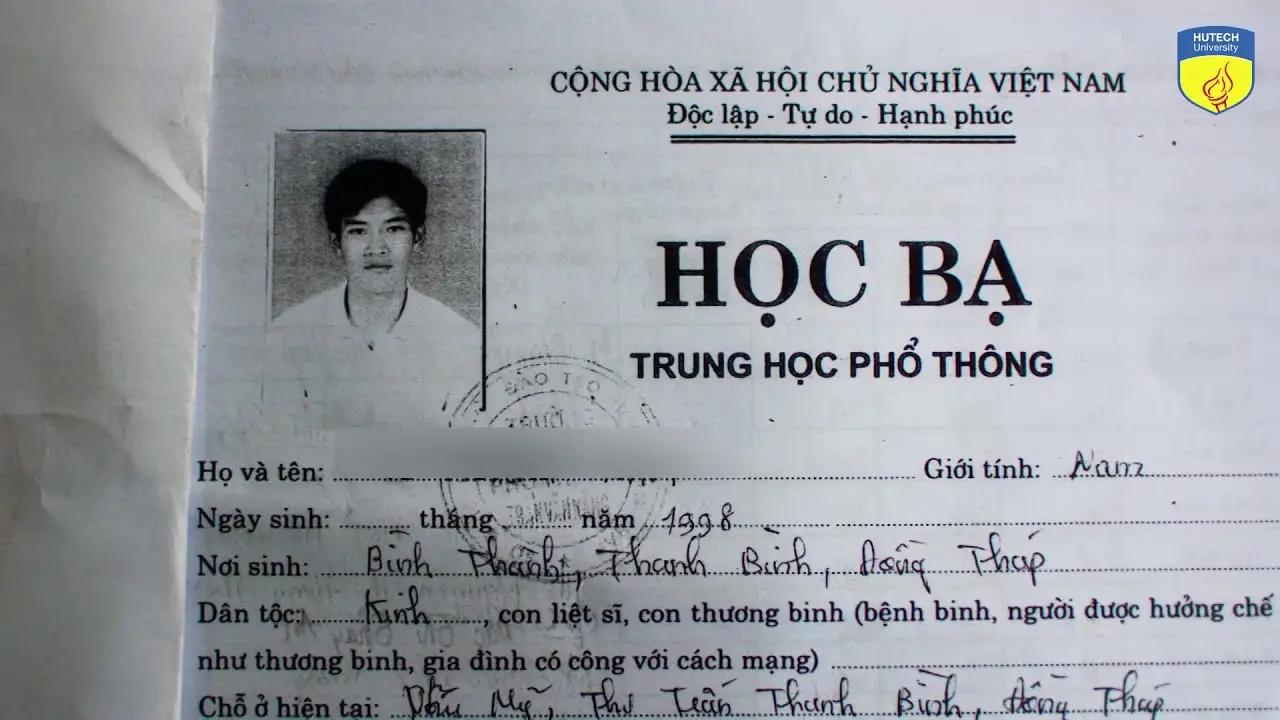 HUTECH
University
CỘNG HÒA XÃ HỘI CHỦ NGHĨA VIỆT NAM
Độc lập - Tự do - Hạnh phúc
HỌC BẠ
TRUNG HỌC PHỔ THÔNG
ĐÀO TẠO
TRƯỜNG
Họ và tên: Giới tính: Nam
Ngày sinh: tháng năm 1998
Nơi sinh: Bình Thành, Thanh Bình, Đồng Tháp
Dân tộc: Kinh, con liệt sĩ, con thương binh (bệnh binh, người được hưởng chế
như thương binh, gia đình có công với cách mạng)
Chỗ ở hiện tại: Phú Mỹ, Thanh Bình, Đồng Tháp